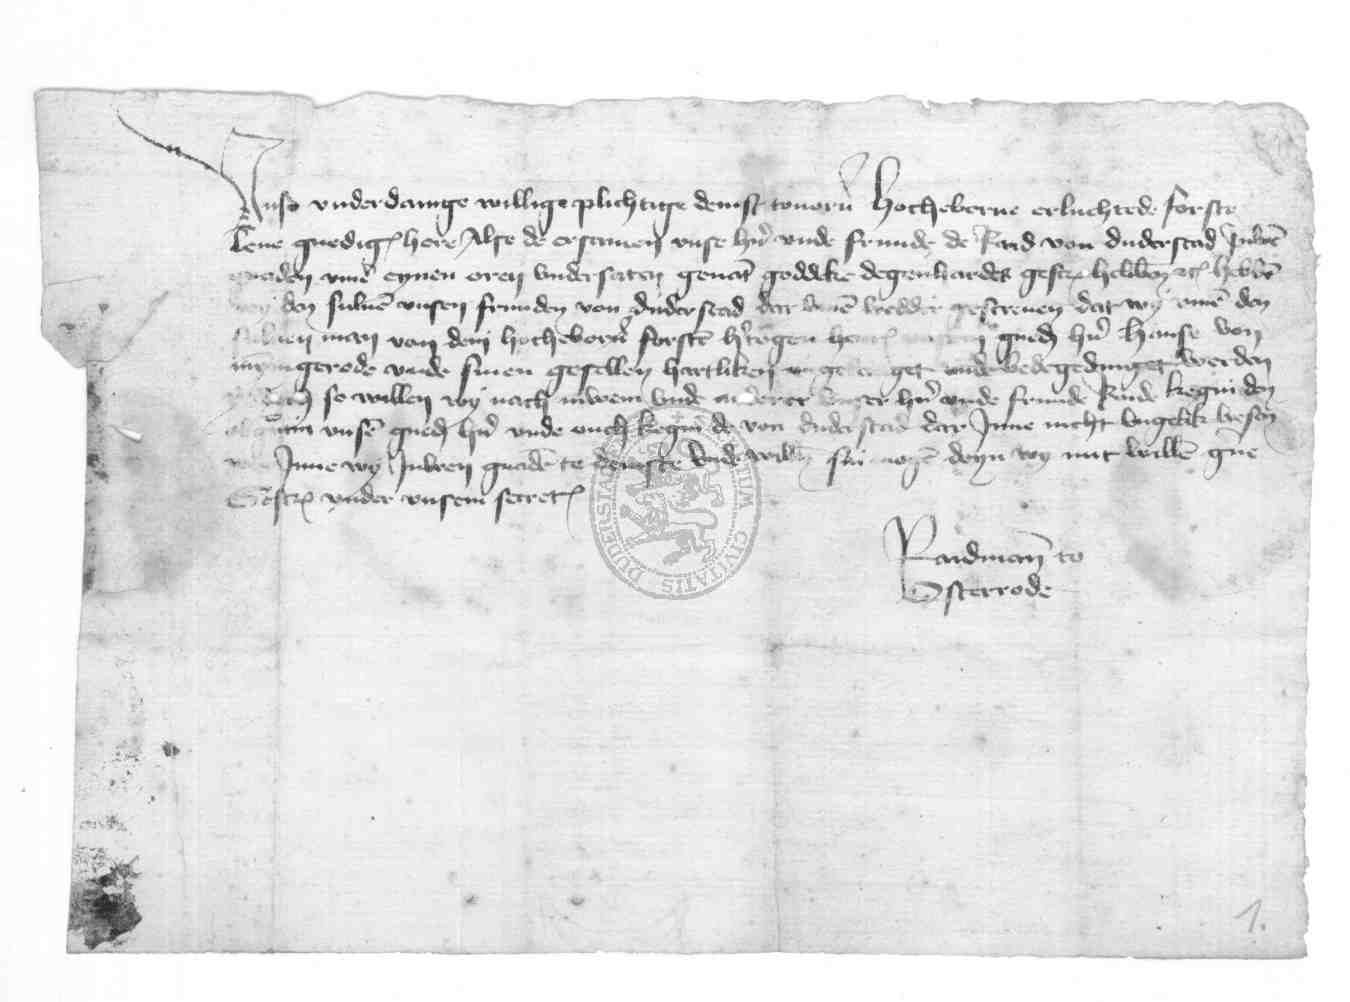 Unse underdanige willige plichtige deinst tovorn Hocheborne erluchtede forste
Leve gnedige here Alse de ersamen unse hern unde frunde de Raid von duderstad Juwen
gnaden umme eynen oren undersaten genant goddeke degenhardes gescr hebben etc hebben
den sulven unsen frunden von duderstad dat breve wedder gescreven dat wy umme den
sulven man von dem hocheborn forsten hertogen gned hern Hanse von
mingerode unde sinen gesellen hartliken unde bedegedinget werden
so willen wy nach juwem unde anderer unser hern unde frunde Rade kegin den
unsen gned hern unde ouch kegin de von duderstad dar Inne nicht ungelik
Inne wy Juwen gnaden to deinste unde willen sin mogen deyn wy mit willen gerne
Gescr under unsem secret
Raidman to
Osterrode
SIGILLUM CIVITATIS DUDERSTAD
1.